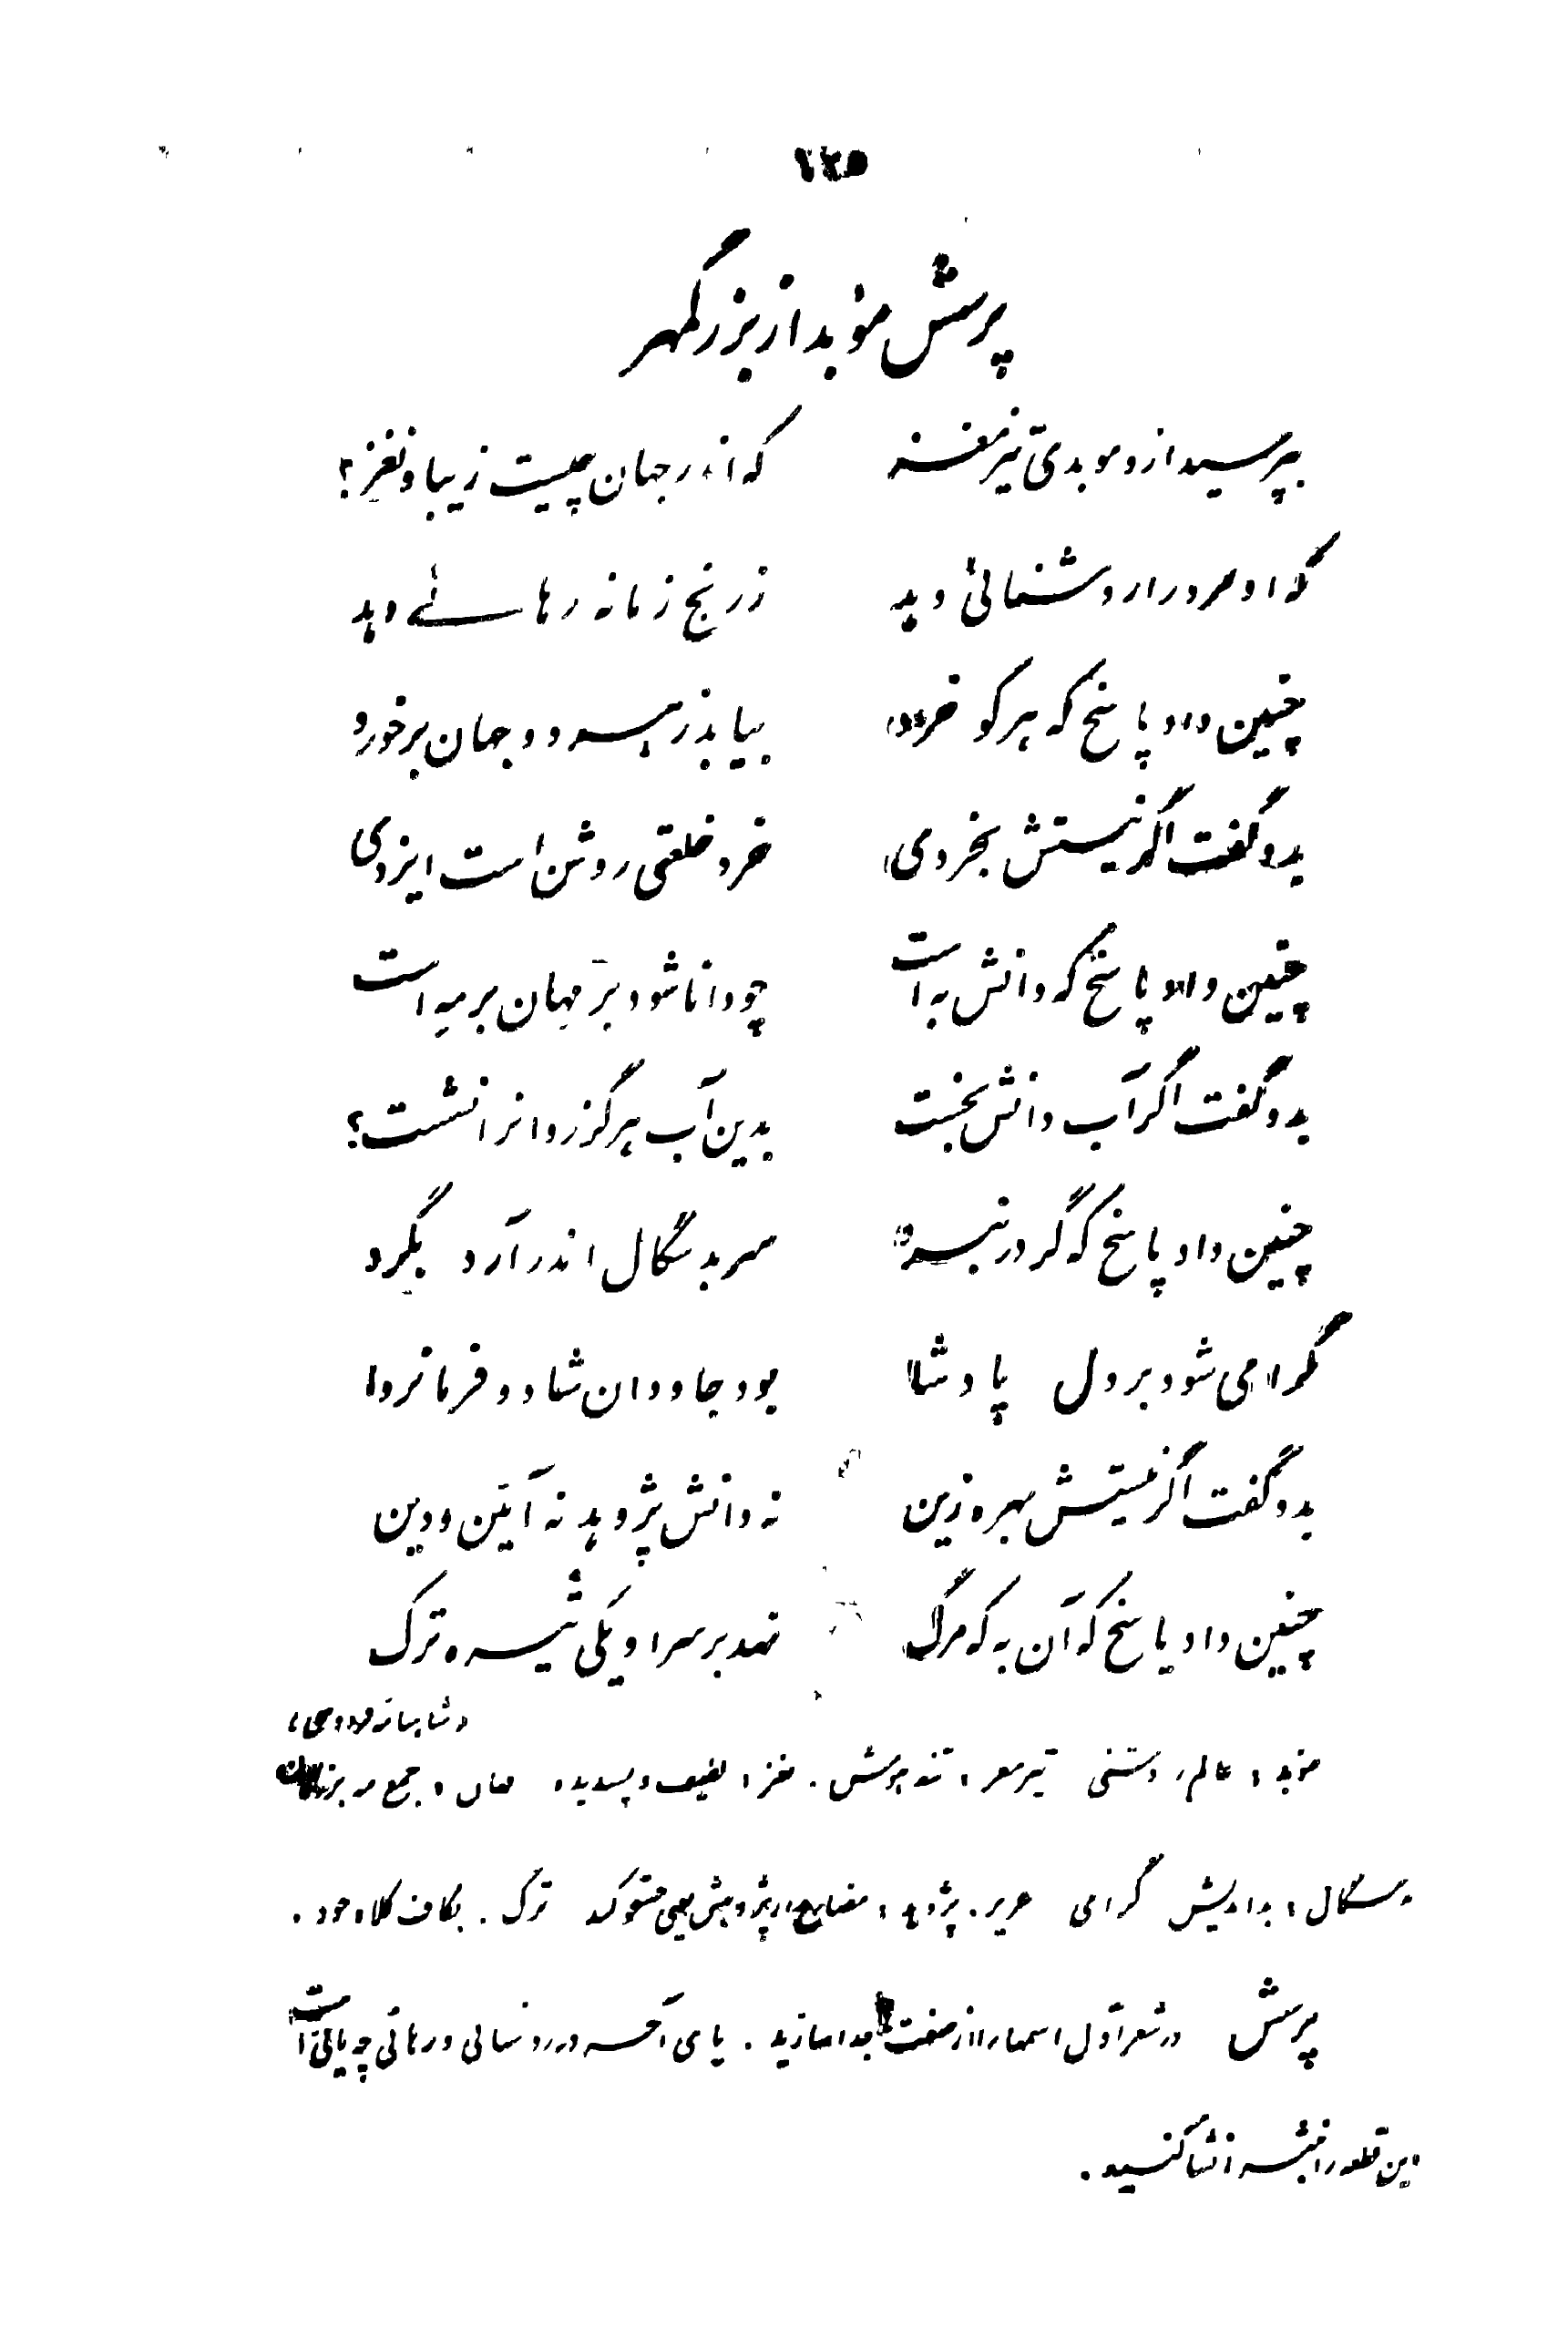 ۲۲۵
پرسش مؤبد از بزرگمهر
بپرسید ازو موبدی تیز مغز
که اندر جهان چیست زیبا و نغز؟
که او مرد را روشنائی دهد
ز رنج زمانه رهائے دهد
چنین داد پاسخ که هر کو خرد
بیابد ز هر دو جهان برخورد
بدو گفت اگر نیستش بخردی
خرد خلعتی روشن است ایزدی
چنین داد پاسخ که دانش به است
چو دانا شود بر مهان بر مه است
بدو گفت اگر آب دانش نجست
بدین آب هرگز روانرا نشست؟
چنین داد پاسخ که گر در نبرد
سر بدسگال اندر آرد بگرد
گرامی شود بر دل پادشا
بود جاودان شاد و فرمانروا
بدو گفت اگر نیستش بهره زین
نه دانش پژوهد نه آئین و دین
چنین داد پاسخ که آن به که مرگ
نهد بر سر او یکی تیره ترک
(شاهنامه فردوسی)
مؤبد، عالم زردشتی تیز مغز، تند هوش. نغز، لطیف و پسندیده مهان، جمع مه بزرگان
بدسگال، بداندیش گرامی عزیز. پژوهد، مضارع از پژوهش یعنی جستجو کند ترک. بکاف کلاه خود.
پرسش در شعر اول اسمها را از صفت جدا سازید. یای آخر در روشنائی و رهائی چه یائی است
این قطعه را بنثر انشا کنید.